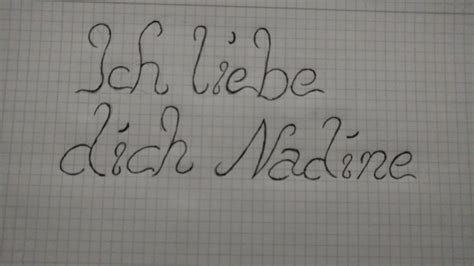 Ich liebe
dich Nadine